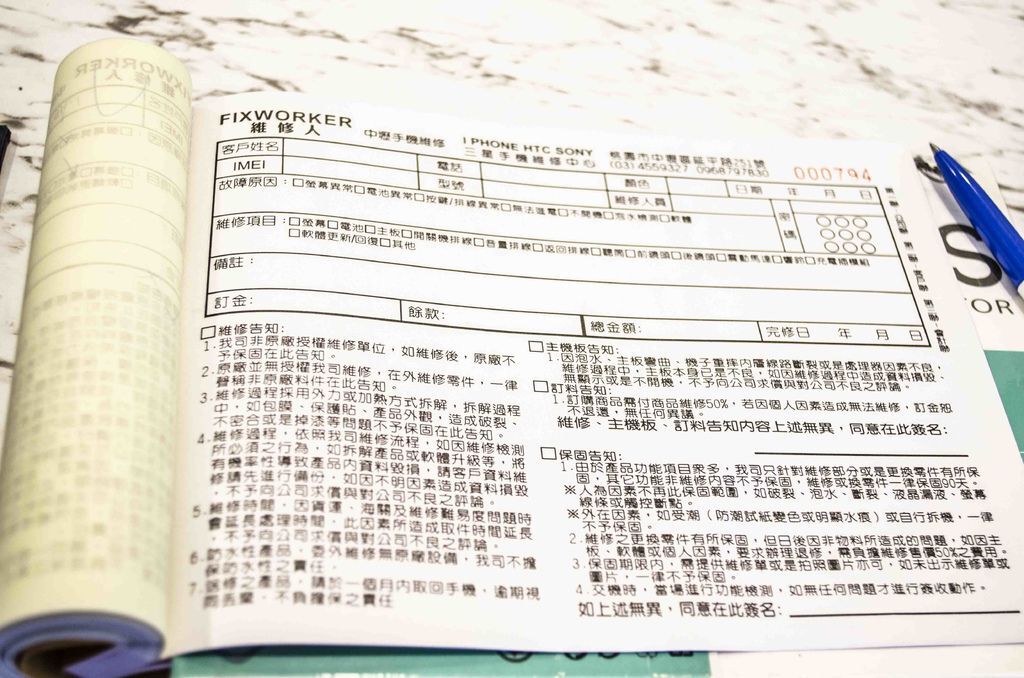 FIXWORKER
維修人
中壢手機維修
I PHONE HTC SONY
三星手機維修中心
桃園市中壢區延平路251號
(03)4559327 0968797830
000794
客戶姓名
電話
顏色
日期 年 月 日
IMEI
型號
維修人員
故障原因：□螢幕異常□電池異常□按鍵/排線異常□無法進電□不開機□泡水檢測□軟體
密碼
維修項目：□螢幕□電池□主板□開關機排線□音量排線□返回排線□聽筒□前鏡頭□後鏡頭□震動馬達□響鈴□充電插模組
□軟體更新/回復□其他
備註：
訂金：
餘款：
總金額：
完修日 年 月 日
□維修告知：
1.我司非原廠授權維修單位，如維修後，原廠不
予保固在此告知。
2.原廠並無授權我司維修，在外維修零件，一律
聲稱非原廠料件在此告知。
3.維修過程採用外力或加熱方式拆解，拆解過程
中，如包膜、保護貼、產品外觀，造成破裂、
不密合或是掉漆等問題不予保固在此告知。
4.維修過程，依照我司維修流程，如因維修檢測
所必須之行為，如拆解產品或軟體升級等，將
有機率性導致產品內資料毀損，請客戶資料維
修請先進行備份，如因不明因素造成資料損毀
，不予向公司求償與對公司不良之評論。
5.維修時間，因貨運、海關及維修難易度問題時
會延長處理時間，此因素所造成取件時間延長
，不予向公司求償與對公司不良之評論。
6.防水性產品，委外維修無原廠設備，我司不擔
保防水性之責任。
7.送修之產品，請於一個月內取回手機，逾期視
同丟棄，不負擔保之責任
□主機板告知：
1.因泡水、主板彎曲、機子重摔內層線路斷裂或是處理器因素不良，
維修過程中，主板本身已是不良，如因維修過程中造成資料損毀、
無顯示或是不開機，不予向公司求償與對公司不良之評論。
□訂料告知：
1.訂購商品需付商品維修50%，若因個人因素造成無法維修，訂金恕
不退還，無任何異議。
維修、主機板、訂料告知內容上述無異，同意在此簽名：
□保固告知：
1.由於產品功能項目衆多，我司只針對維修部分或是更換零件有所保
固，其它功能非維修內容不予保固，維修或換零件一律保固90天。
※人為因素不再此保固範圍，如破裂、泡水、斷裂、液晶漏液、螢幕
線條或觸控斷點。
※外在因素，如受潮（防潮試紙變色或明顯水痕）或自行拆機，一律
不予保固。
2.維修之更換零件有所保固，但日後因非物料所造成的問題，如因主
板、軟體或個人因素，要求辦理退修，需負擔維修售價50%之費用。
3.保固期限內，需提供維修單或是拍照圖片亦可，如未出示維修單或
圖片，一律不予保固。
4.交機時，當場進行功能檢測，如無任何問題才進行簽收動作。
如上述無異，同意在此簽名：
S
OR